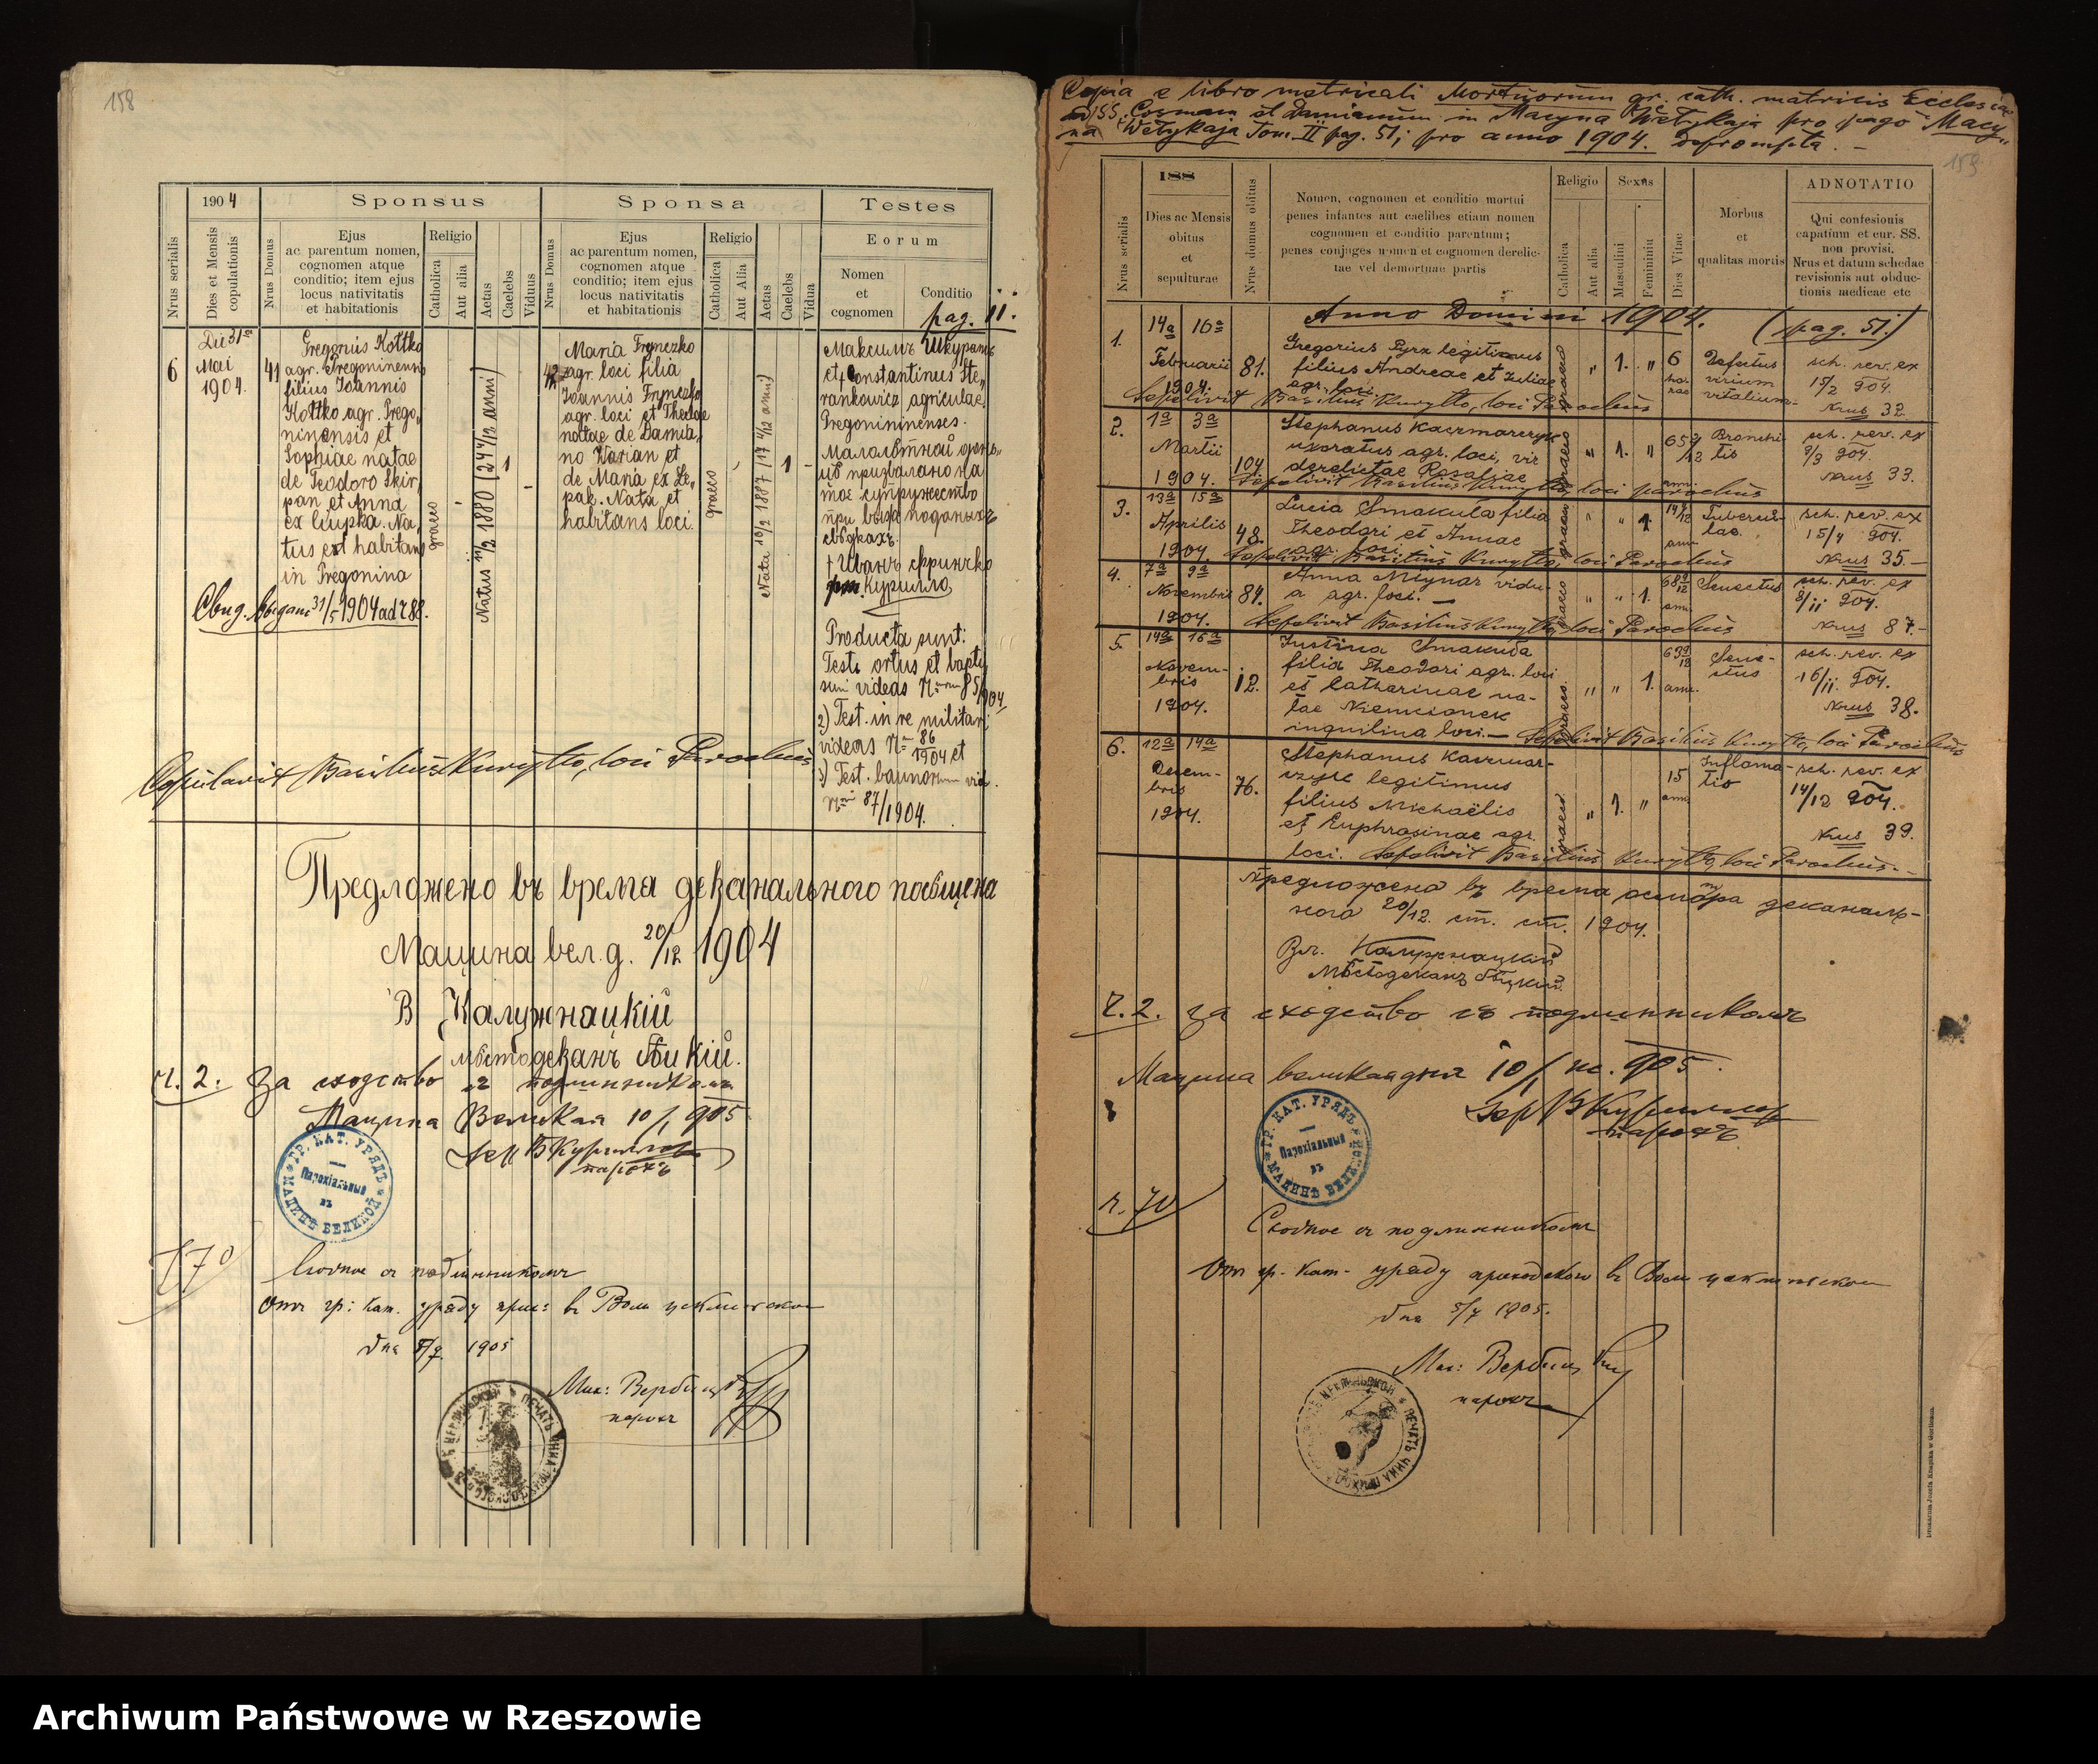 158
1904
Sponsus
Sponsa
Testes
Nrus serialis
Dies et Mensis copulationis
Nrus Domus
Ejus
ac parentum nomen,
cognomen atque
conditio; item ejus
locus nativitatis
et habitationis
Religio
Catholica
Aut alia
Aetas
Caelebs
Viduus
Nrus Domus
Ejus
ac parentum nomen,
cognomen atque
conditio; item ejus
locus nativitatis
et habitationis
Religio
Catholica
Aut Alia
Aetas
Caelebs
Vidua
Eorum
Nomen
et
cognomen
Conditio
pag. 11.
6
Die 31a
Mai
1904.
41
Gregorius Kottko
agr. Pregoninensis
filius Joannis
Kottko agr. Prego„
ninensis et
Sophiae natae
de Teodoro Skir„
pan et Anna
ex Czupka. Na„
tus et habitans
in Pregonina
graeco
Natus 11/2 1880 (24 4/12 anni)
1
-
42
Maria Frynczko
agr. loci filia
Joannis Frynczko
agr. loci et Theclae
natae de Damia„
no Warian et
de Maria ex Le„
pak. Nata et
habitans loci.
graeco
Nata 10/2 1887 (17 4/12 anni)
1 -
Максимъ Шкуратъ
et + Constantinus Ste„
rankowicz agriculae
Pregonininenses.
Малолѣтной
призвалано на
тое супружество
при выже поданыхъ
свѣдкахъ.
+ Иванъ Фринчко
рт. Курилло
Свид. выдані 31/5 1904 ad 2 88.
Producta sunt:
Test. ortus et bapty
smi videas Nrum 85/904
2) Test. in re militari
videas Nr 86/1904 et
3) Test. bannorum vid.
Nrum 87/1904.
Copulavit Basilius Kuryłło, loci Parochus
Предложено въ время деканального посѣщеня
Мацина вел. д. 20/12 1904
В Калужнацкій
мѣстодеканъ бѣцкій.
Ч. 2. За сходство съ подлинникомъ
Мацина Великая 10/1 905
Іер ВКурилло
парохъ
ГР. КАТ. УРЯДЪ
Парохіальный
въ
МАЦИНѢ ВЕЛИКОЙ
Ч 70
Сходное съ подлинникомъ
Отъ гр: кат. уряду прих: въ Воли цеклинской
дня 5/7. 1905
Мих: Вербицкій
парохъ
Copia e libro metricali Mortuorum gr. cath. matricis Ecclesiae
ad SS. Cosmam et Damianum in Macyna Wełykaja pro pago Macy„
na Wełykaja Tom. II pag. 51; pro anno 1904. deprompta. -
159
Nrus serialis
188
Dies ac Mensis
obitus
et
sepulturae
Nrus domus obitus
Nomen, cognomen et conditio mortui
penes infantes aut caelibes etiam nomen
cognomen et conditio parentum;
penes conjuges nomen et cognomen derelic-
tae vel demortuae partis
Religio
Catholica
Aut alia
Sexus
Masculini
Feminini
Dies Vitae
Morbus
et
qualitas mortis
ADNOTATIO
Qui confesionis
capatium et cur. SS.
non provisi.
Nrus et datum schedae
revisionis aut obduc-
tionis medicae etc
Anno Domini 1904. (pag. 51.)
1.
14a 16a
Februarii
1904.
81.
Gregorius Pyrz legitimus
filius Andreae et Juliae
agr. loci
graeco
„ 1. „
6
ho-
rae
Defectus
virium
vitalium-
sch. rev. ex
15/2 904.
Nrus 32.
Sepelivit Basilius Kuryłło, loci Parochus
2.
1a 3a
Martii
1904.
104.
Stephanus Kaczmarczyk
uxoratus agr. loci, vir
derelictae Rosaliae
graeco
„ 1. „
65 9/12
anni
Bronchi-
tis
sch. rev. ex
3/3 904.
Nrus 33.
Sepelivit Basilius Kuryłło, loci parochus
3.
13a 15a
Aprilis
1904.
48.
Lucia Smakula filia
Theodori et Annae
agr. loci
graeco
„ „ 1.
anni
Tubercu-
lae.
sch. rev. ex
15/4 904.
Nrus 35.—
Sepelivit Basilius Kuryłło, loci Parochus
4.
7a 9a
Novembris
1904.
84.
Anna Młynar vidu-
a agr. loci. —
graeco
„ „ 1.
68 9/12
anni
Senectus
sch. rev. ex
8/11 904.
Nrus 37.-
Sepelivit Basilius Kuryłło, loci Parochus
5.
14a 16a
Novem-
bris
1904.
12.
Justina Smakuda
filia Theodori agr. loci
et Catharinae na-
tae Niemcionek
inquilina loci.—
graeco.
„ „ 1.
63 9/12
anni
Sene-
ctus
sch. rev. ex
16/11. 904.
Nrus 38.
Sepelivit Basilius Kuryłło, loci Parochus
6.
12a 14a
Decem-
bris
1904.
76.
Stephanus Kaczmar-
czyk legitimus
filius Michaëlis
et Euphrosinae agr.
loci.
graeco.
„ 1. „
15
anni
Inflama-
tio
sch. rev. ex
14/12 904.
Nrus 39.
Sepelivit Basilius Kuryłło, loci Parochus.-
предложена въ время осмотра деканаль-
ного 20/12. ст. ст. 1904.
Вл. Калужнацкій
Мѣстодеканъ бѣцкій.
Ч. 2. За сходство съ подлинникомъ
Мацина великая дня 10/1 н. с. 905.
Іер ВКурилло
парохъ
ГР. КАТ. УРЯДЪ
Парохіальный
въ
МАЦИНѢ ВЕЛИКОЙ
ч. 70
Сходное съ подлинникомъ
Отъ гр. кат. уряду приходского въ Воли цеклинской
дня 5/7 1905.
Мих: Вербицкій
парохъ
Drukarnia Józefa Knapika w Gorlicach.
Archiwum Państwowe w Rzeszowie